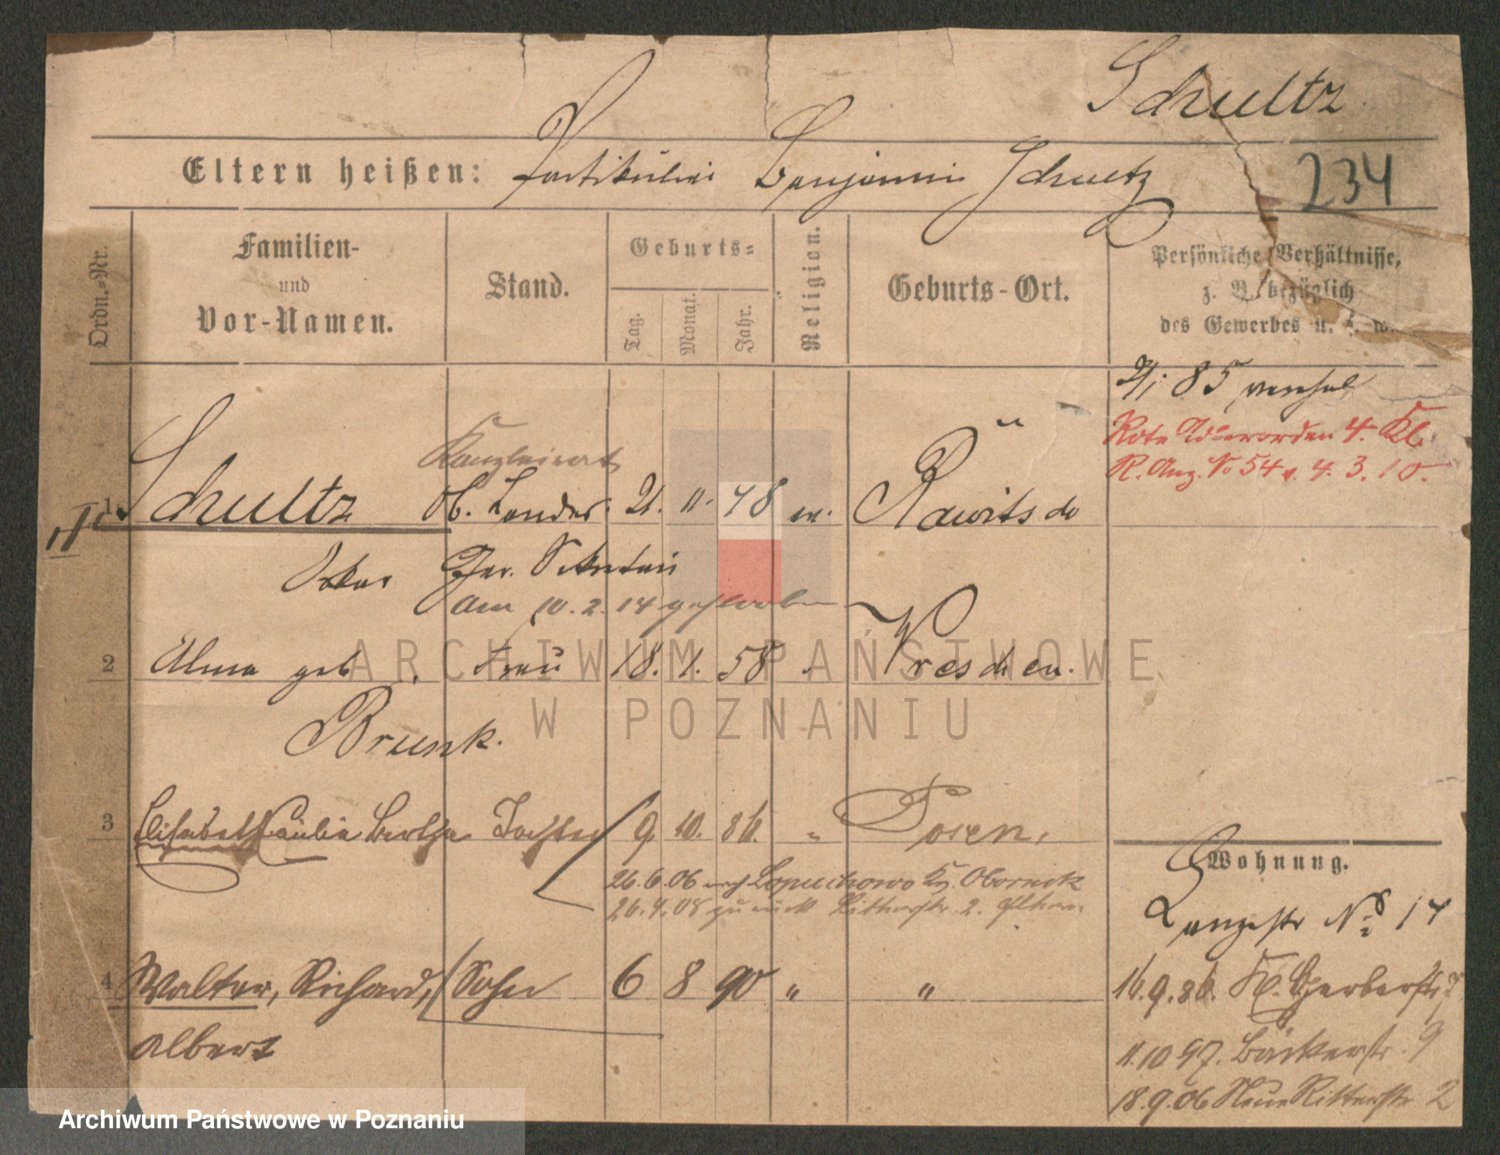 Schultz
Eltern heißen: Partikulier Benjamin Schultz
234
Ordn.-Nr.
Familien-
und
Vor-Namen.
Stand.
Geburts-
Tag.
Monat.
Jahr.
Religion.
Geburts-Ort.
Persönliche Verhältnisse,
z. B. bezüglich
des Gewerbes u. s. w.
85
Rote Adlerorden 4. Kl.
R. Anz. No 54 v. 4. 3. 10.
Kanzleirat
1 Schultz Ob. Landes- 21. 11. 48 ev. Rawitsch
Oskar Ger. Sekretär
am 10. 2. 14 gestorben
2 Alma geb. Frau 18. 1. 58 Dreschen.
Brunk.
3 Elisabeth Paulie Bertha Tochter 9. 10. 86. " Posen.
26.6.06 nach Lopuchowo Kr. Obornik
26.4.08 zurück Ritterstr. 2. Eltern
Wohnung.
Langestr No 14
4 Walter, Richard, Sohn 6 8 90 " "
Albert
16.9.86. Kl. Gerberstr.
11.10 97. Bäckerstr. 9
18.9.06 Neue Ritterstr 2
ARCHIWUM PAŃSTWOWE
W POZNANIU
Archiwum Państwowe w Poznaniu